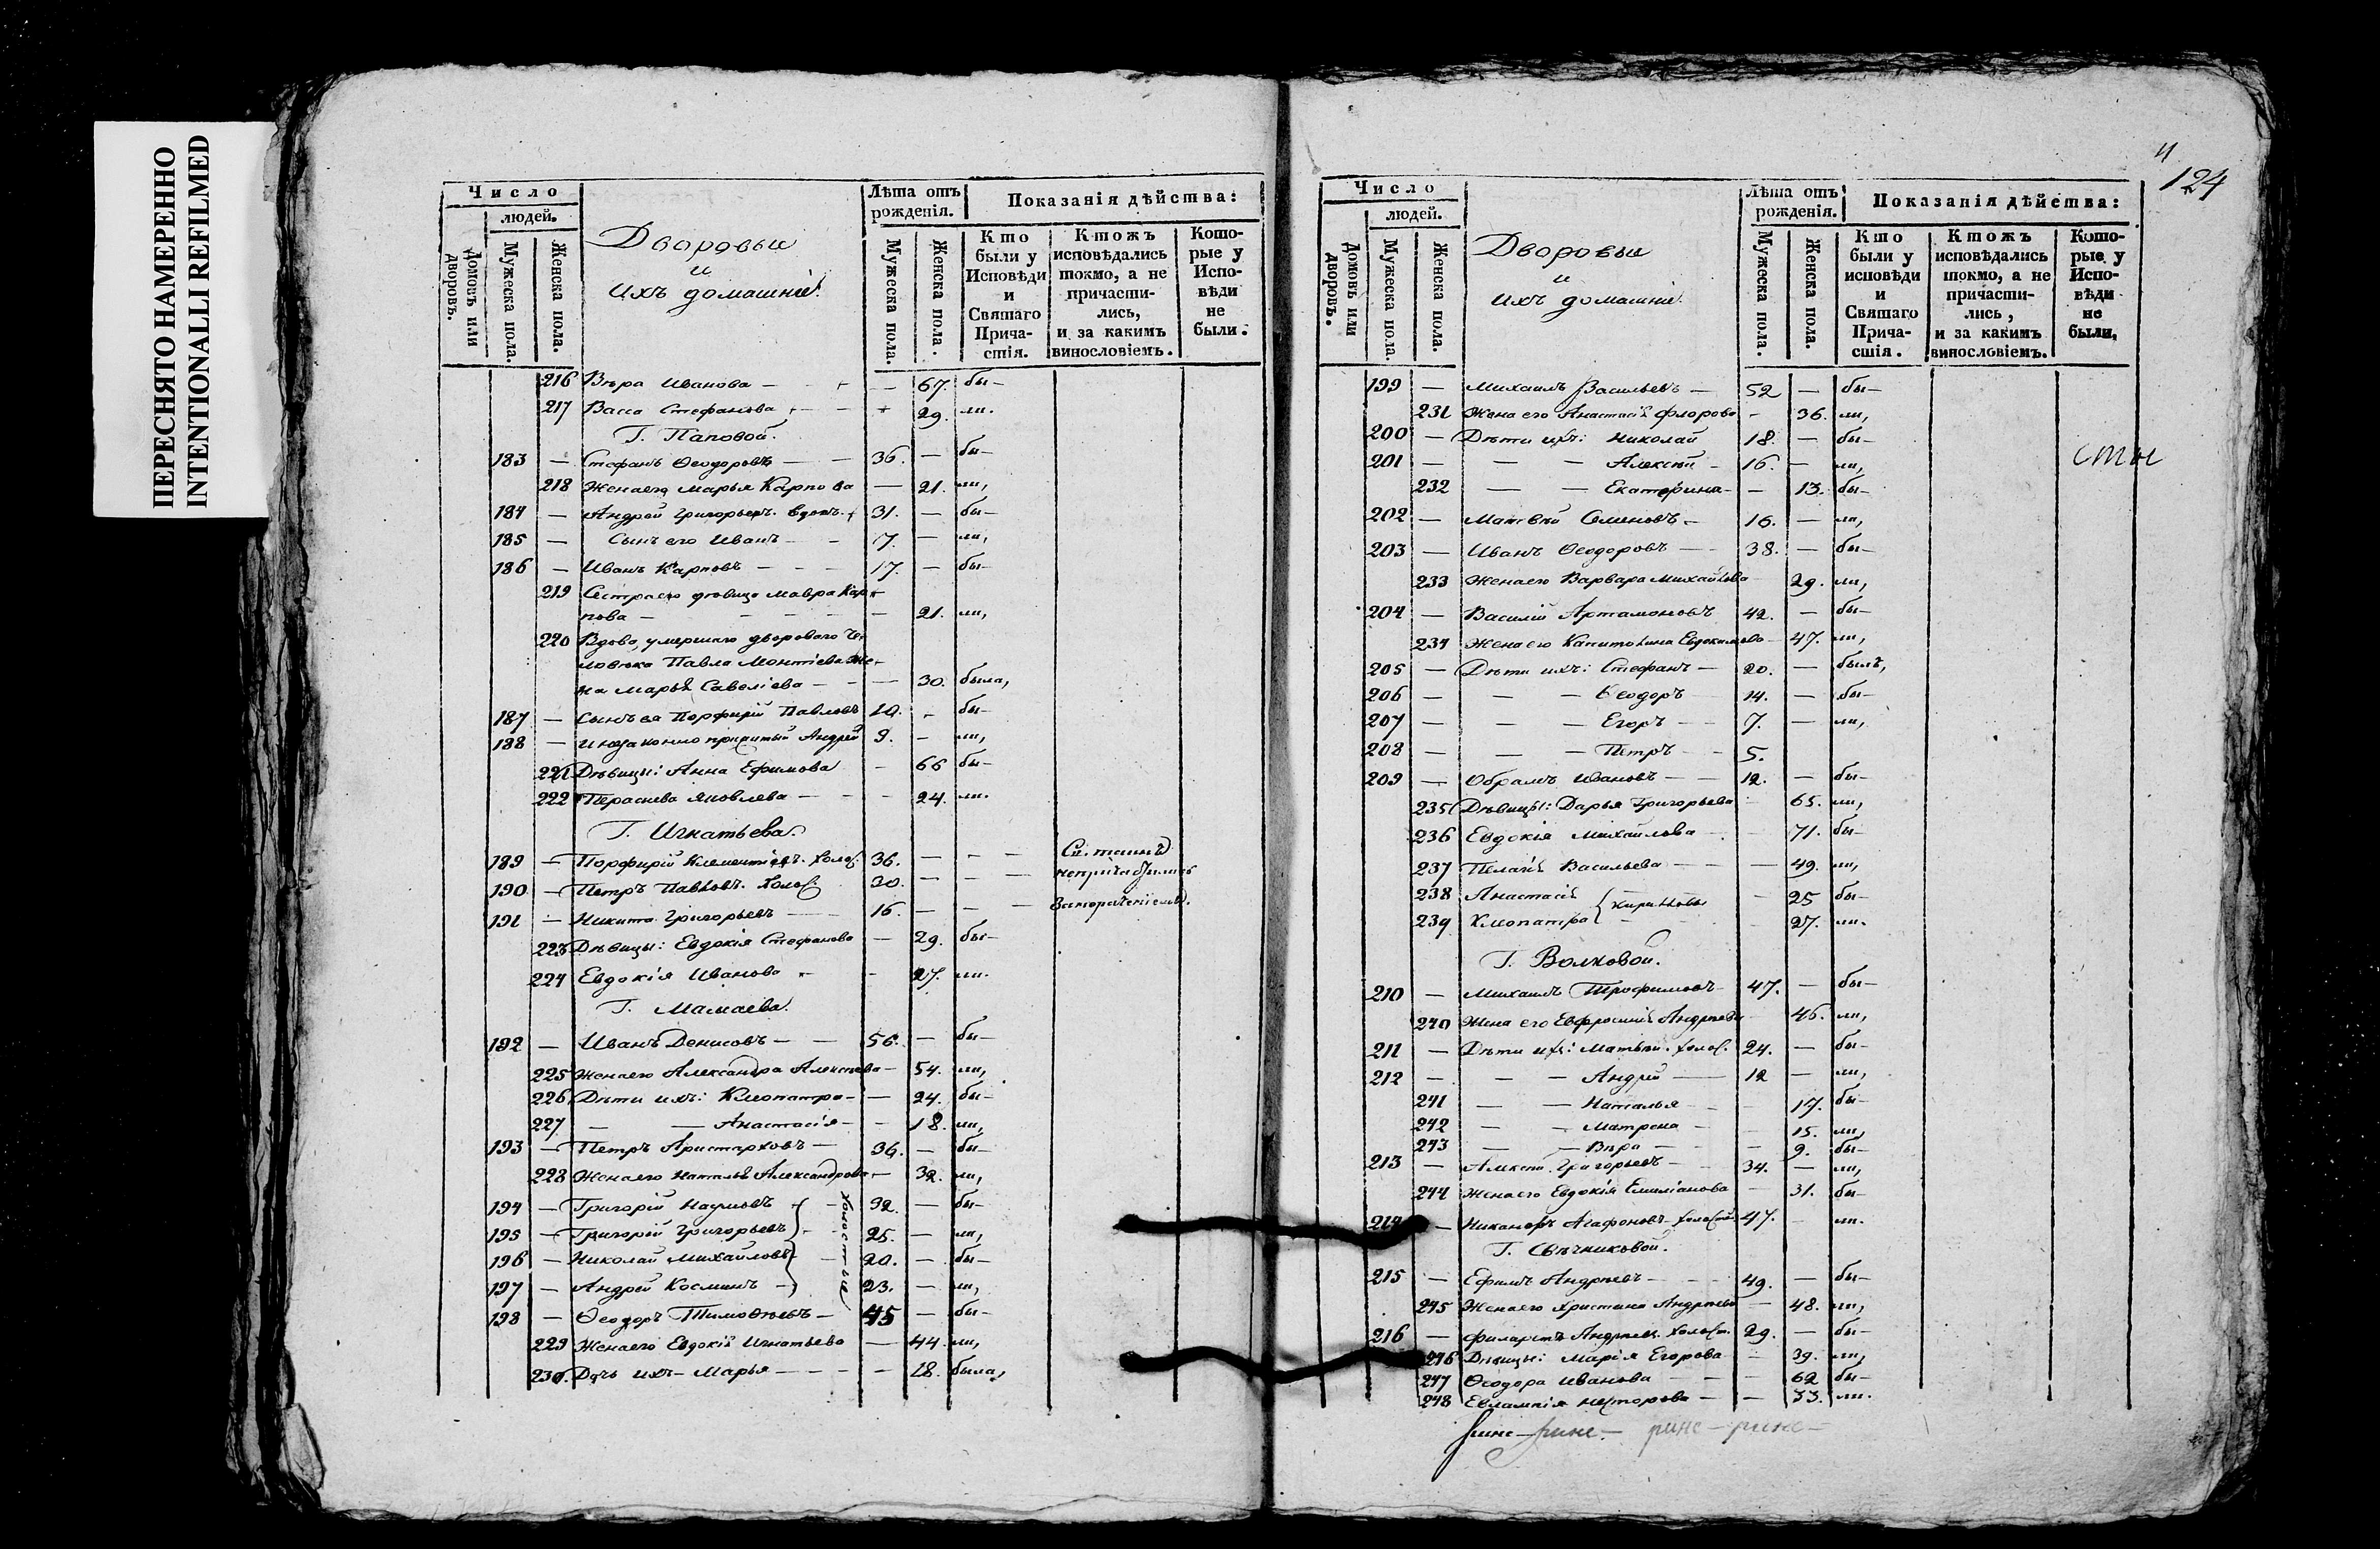 ПЕРЕСНЯТО НАМЕРЕННО
INTENTIONALLI REFILMED
Число
людей.
Домовъ или дворовъ.
Мужеска пола.
Женска пола.
Дворовыи
и
ихъ домашніи.
Лѣта отъ рожденія.
Мужеска пола.
Женска пола.
Показанія дѣйства:
Кто были у Исповѣди и Святаго Причастія.
Ктожъ исповѣдались токмо, а не причастились, и за какимъ винословіемъ.
Которые у Исповѣди не были.
216 Вѣра Иванова — — 67. бы—
217 Васса Стефанова — 29. ли.
Г. Паповой.
183 — Стефанъ Ѳеодоровъ — 36. — бы—
218 Жена его Марья Карпова — 21. ли,
184 — Андрей Григорьевъ вдов. 31. — бы—
185 — Сынъ его Иванъ — 7. — ли,
186 — Иванъ Карповъ — 17. — бы—
219 Сестра его дѣвица Мавра Кар-
пова — — 21. ли,
220 Вдова, умершаго двороваго че-
ловѣка Павла Монтіева же-
на Марья Савеліева — — 30. была,
187 — Сынъ ея Порфирій Павловъ 10. — бы—
188 — и незаконно прижитый Андрей 9. — ли,
221 Дѣвицы: Анна Ефимова — 66 бы—
222 Яковлева — — 24. ли.
Г. Игнатьева.
189 — Порфирій Климентіевъ. холос. 36. — — —
Св. таинъ
190 — Петръ Павловъ. холос. 30. — — —
191 — Никита Григорьевъ — 16. — — —
223 Дѣвицы: Евдокія Стефанова — 29. бы—
224 Евдокія Иванова — — 27. ли.
Г. Мамаева.
192 — Иванъ Денисовъ — — 56. — бы—
225 Жена его Александра Алексѣева — 54. ли,
226 Дѣти ихъ: Клеопатра — — 24. бы—
227 — — Анастасія — — 18. ли,
193 — Петръ Аристарховъ — 36. — бы—
228 Жена его Наталья Александрова — 32. ли,
194 — Григорій Наумовъ — 32. — бы—
195 — Григорій Григорьевъ — 25. — ли,
196 — Николай Михайловъ — 20. — бы—
197 — Андрей Косминъ — 23. — ли,
холостые
198 — Ѳеодоръ Тимоѳѣевъ — 45 — бы—
229 Жена его Евдокія Игнатьева — 44. ли,
230. Дочь ихъ — Марья — — — 18. была,
124
Число
людей.
Домовъ или дворовъ.
Мужеска пола.
Женска пола.
Дворовыи
и
ихъ домашніи.
Лѣта отъ рожденія.
Мужеска пола.
Женска пола.
Показанія дѣйства:
Кто были у исповѣди и Святаго Причастія.
Ктожъ исповѣдались токмо, а не причастились, и за какимъ винословіемъ.
Которые у Исповѣди не были.
199 — Михаилъ Васильевъ — 52 — бы—
231 Жена его Анастасія Флорова — 36. ли,
200 — Дѣти ихъ: Николай 18. — бы—
сты
201 — — — Алексѣй — 16. — ли,
232 — — Екатерина — — 13. бы—
202 — Матвѣй Семеновъ — 16. — ли,
203 — Иванъ Ѳеодоровъ — 38. — бы—
233 Жена его Варвара Михайлова 29. ли,
204 — Василій Артамоновъ 42. — бы—
234 Жена его Капитолина Евдокимова — 47. ли,
205 — Дѣти ихъ: Стефанъ — 20. — былъ,
206 — — — Ѳеодоръ 14. — бы—
207 — — — Егоръ — 7. — ли,
208 — — — Петръ — 5.
209 — Абрамъ Ивановъ — 12. — бы—
235 Дѣвицы: Дарья Григорьева 65. ли,
236 Евдокія Михайлова — 71. бы—
237 Пелагія Васильева — — 49. ли,
238 Анастасія — 25 бы—
Кириловы
239 Клеопатра — 27. ли.
Г. Волковой.
210 — Михаилъ Трофимовъ — 47. — бы—
240 Жена его Евфросинія Андреева 46. ли,
211 — Дѣти их: Матвѣй. холос. 24. — бы—
212 — — — Андрей — 12 — ли,
241 — — Наталья — 17. бы—
242 — — Матрена — 15. ли,
243 — — Вѣра — — 9. бы—
213 — Алексѣй Григорьевъ — 34. — ли,
244 Жена его Евдокія Емиліанова — 31. бы—
214 — Никаноръ Агафоновъ — холостъ 47. — ли.
Г. Свѣчниковой.
215 — Ефимъ Андреевъ — 49. — бы—
245 Жена его Христина Андреева — 48. ли,
216 — Филаретъ Андреев. холост. 29. — бы—
246 Дѣвицы: Марія Егорова — 39. ли,
247 Ѳеодора Иванова — — 62 бы—
248 Евлампія Несторова — — 33. ли.